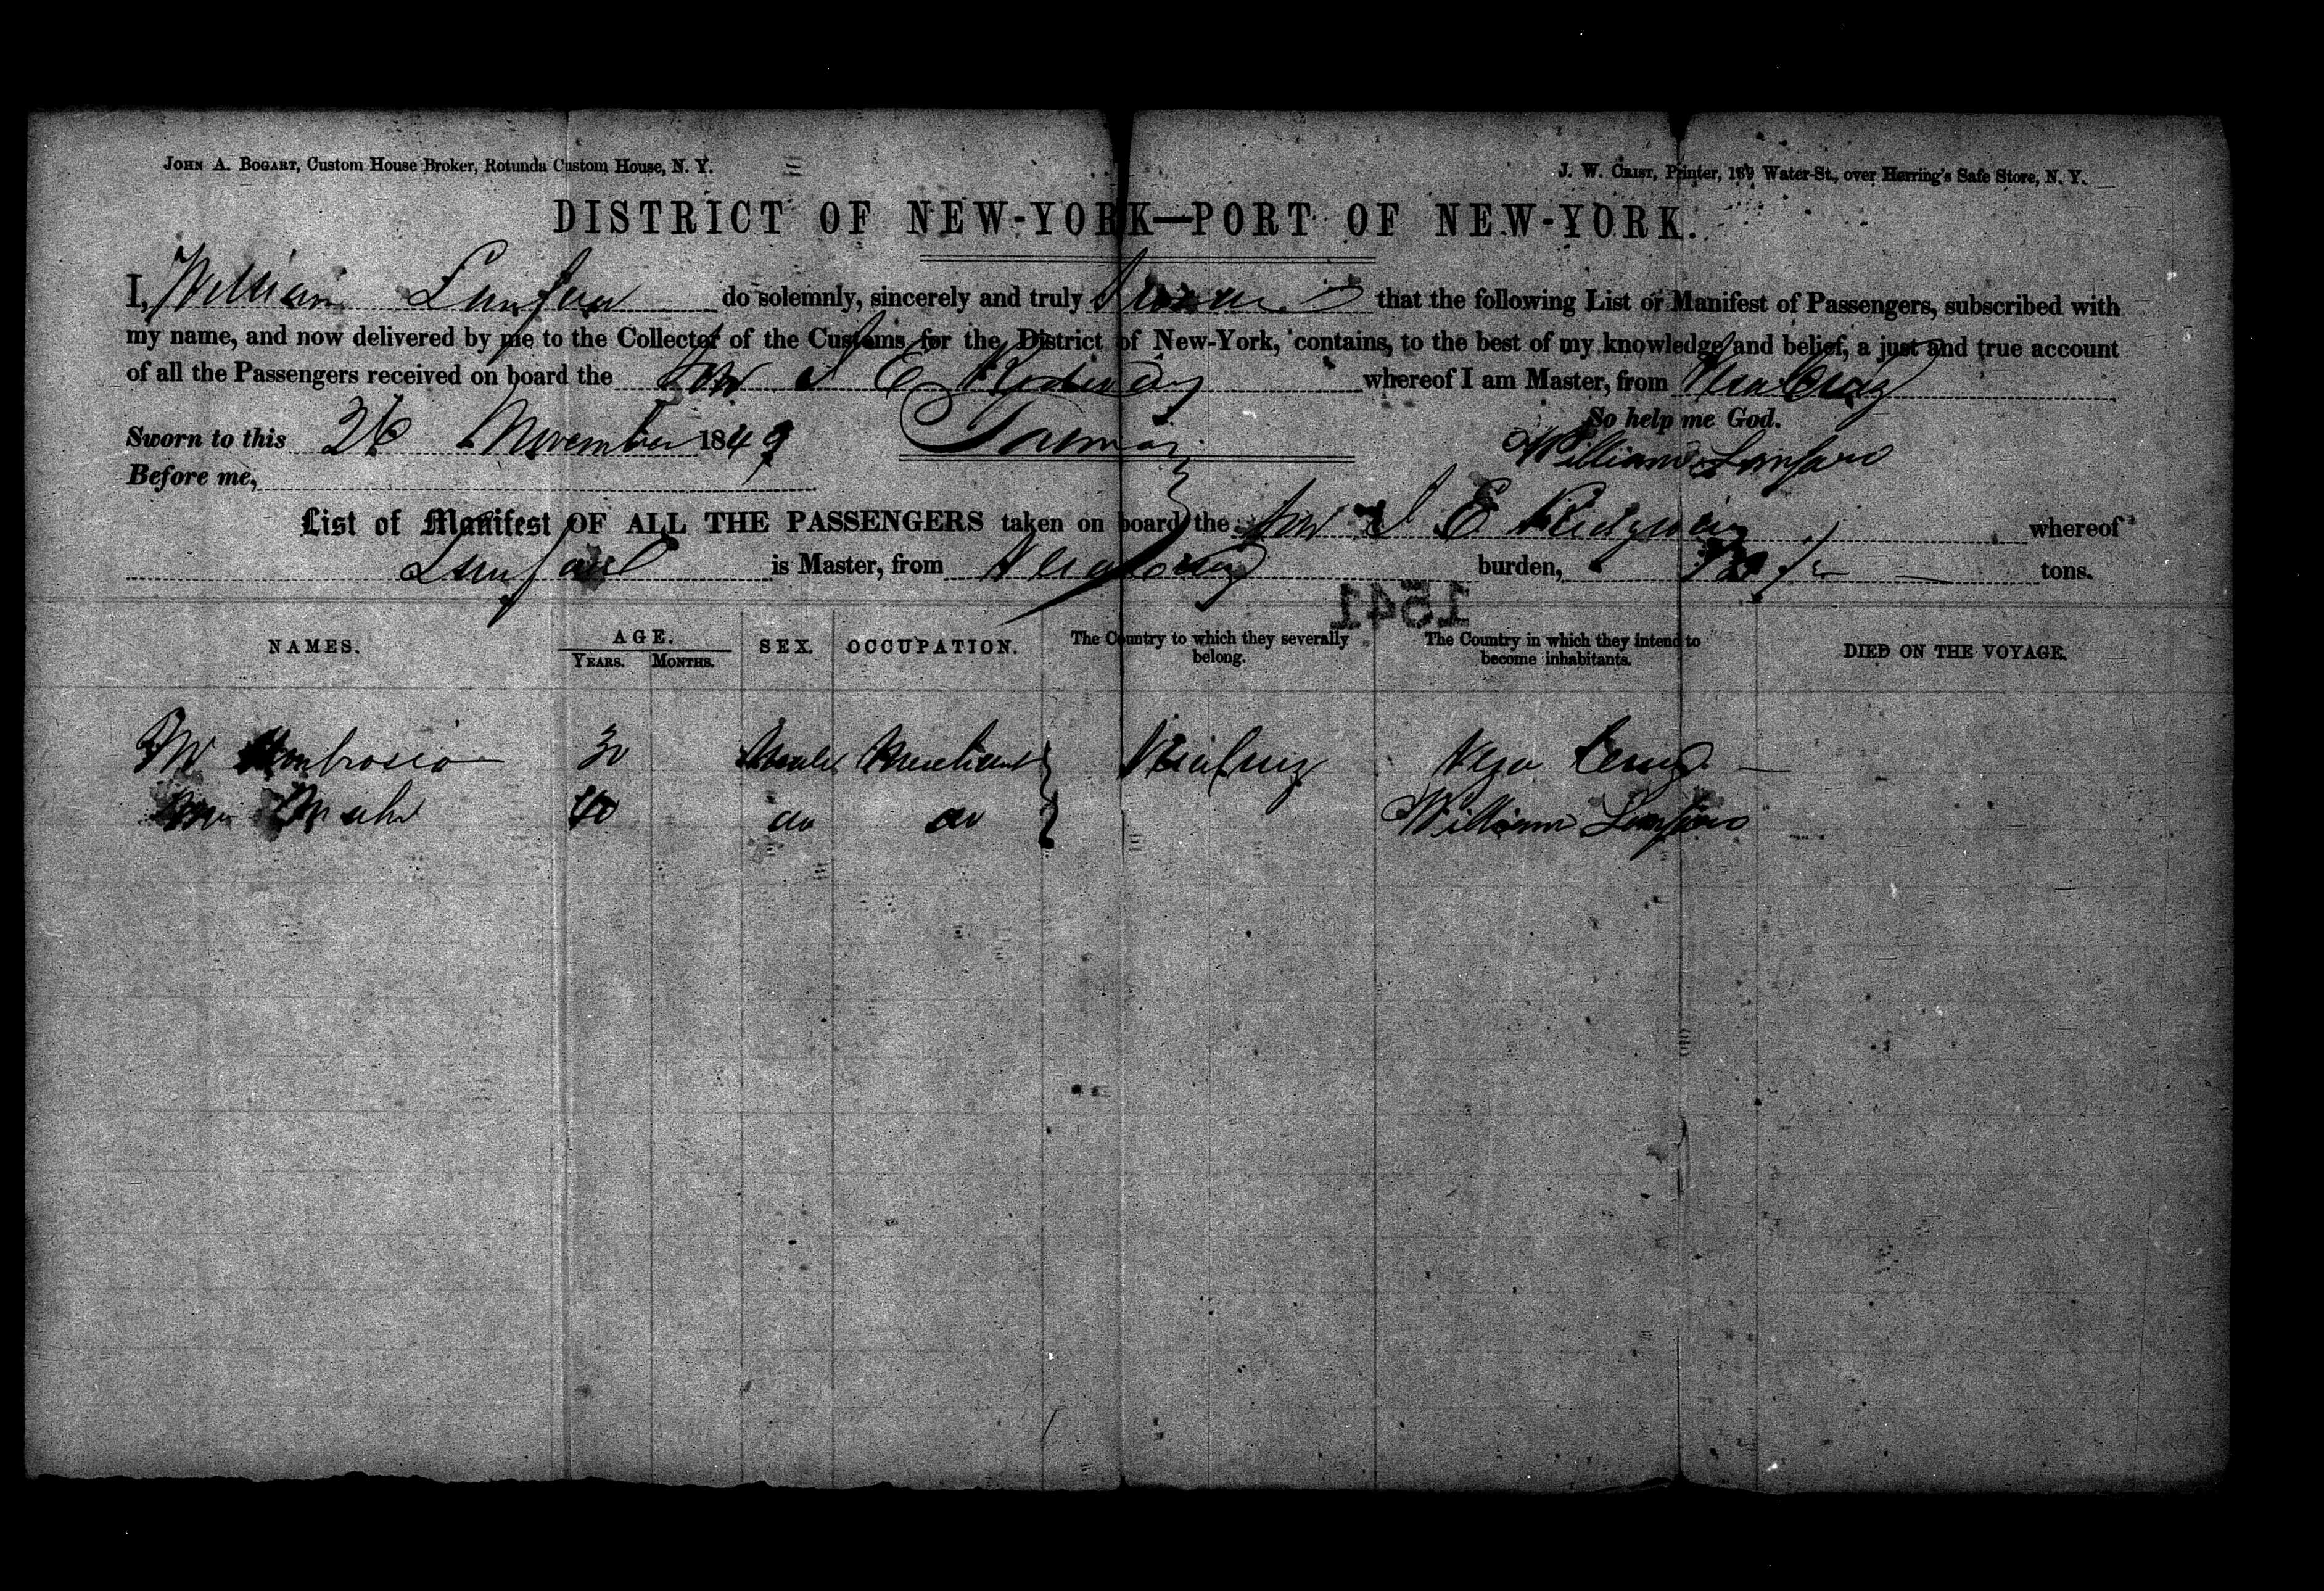 JOHN A. BOGART, Custom House Broker, Rotunda Custom House, N. Y.
J. W. CRIST, Printer, 189 Water-St., over Herring's Safe Store, N. Y.
DISTRICT OF NEW-YORK—PORT OF NEW-YORK.
I, William do solemnly, sincerely and truly that the following List or Manifest of Passengers, subscribed with
my name, and now delivered by me to the Collector of the Customs for the District of New-York, contains, to the best of my knowledge and belief, a just and true account
of all the Passengers received on board the E whereof I am Master, from Vera Cruz
So help me God.
Sworn to this 26 November 1849
William
Before me,
List of Manifest OF ALL THE PASSENGERS taken on board the E Ridgway whereof
is Master, from Vera Cruz burden, tons.
1541
NAMES. AGE. YEARS. MONTHS. SEX. OCCUPATION. The Country to which they severally belong. The Country in which they intend to become inhabitants. DIED ON THE VOYAGE.
Ambrosio 30 Male Merchant Vera Cruz Vera Cruz
40 do do William